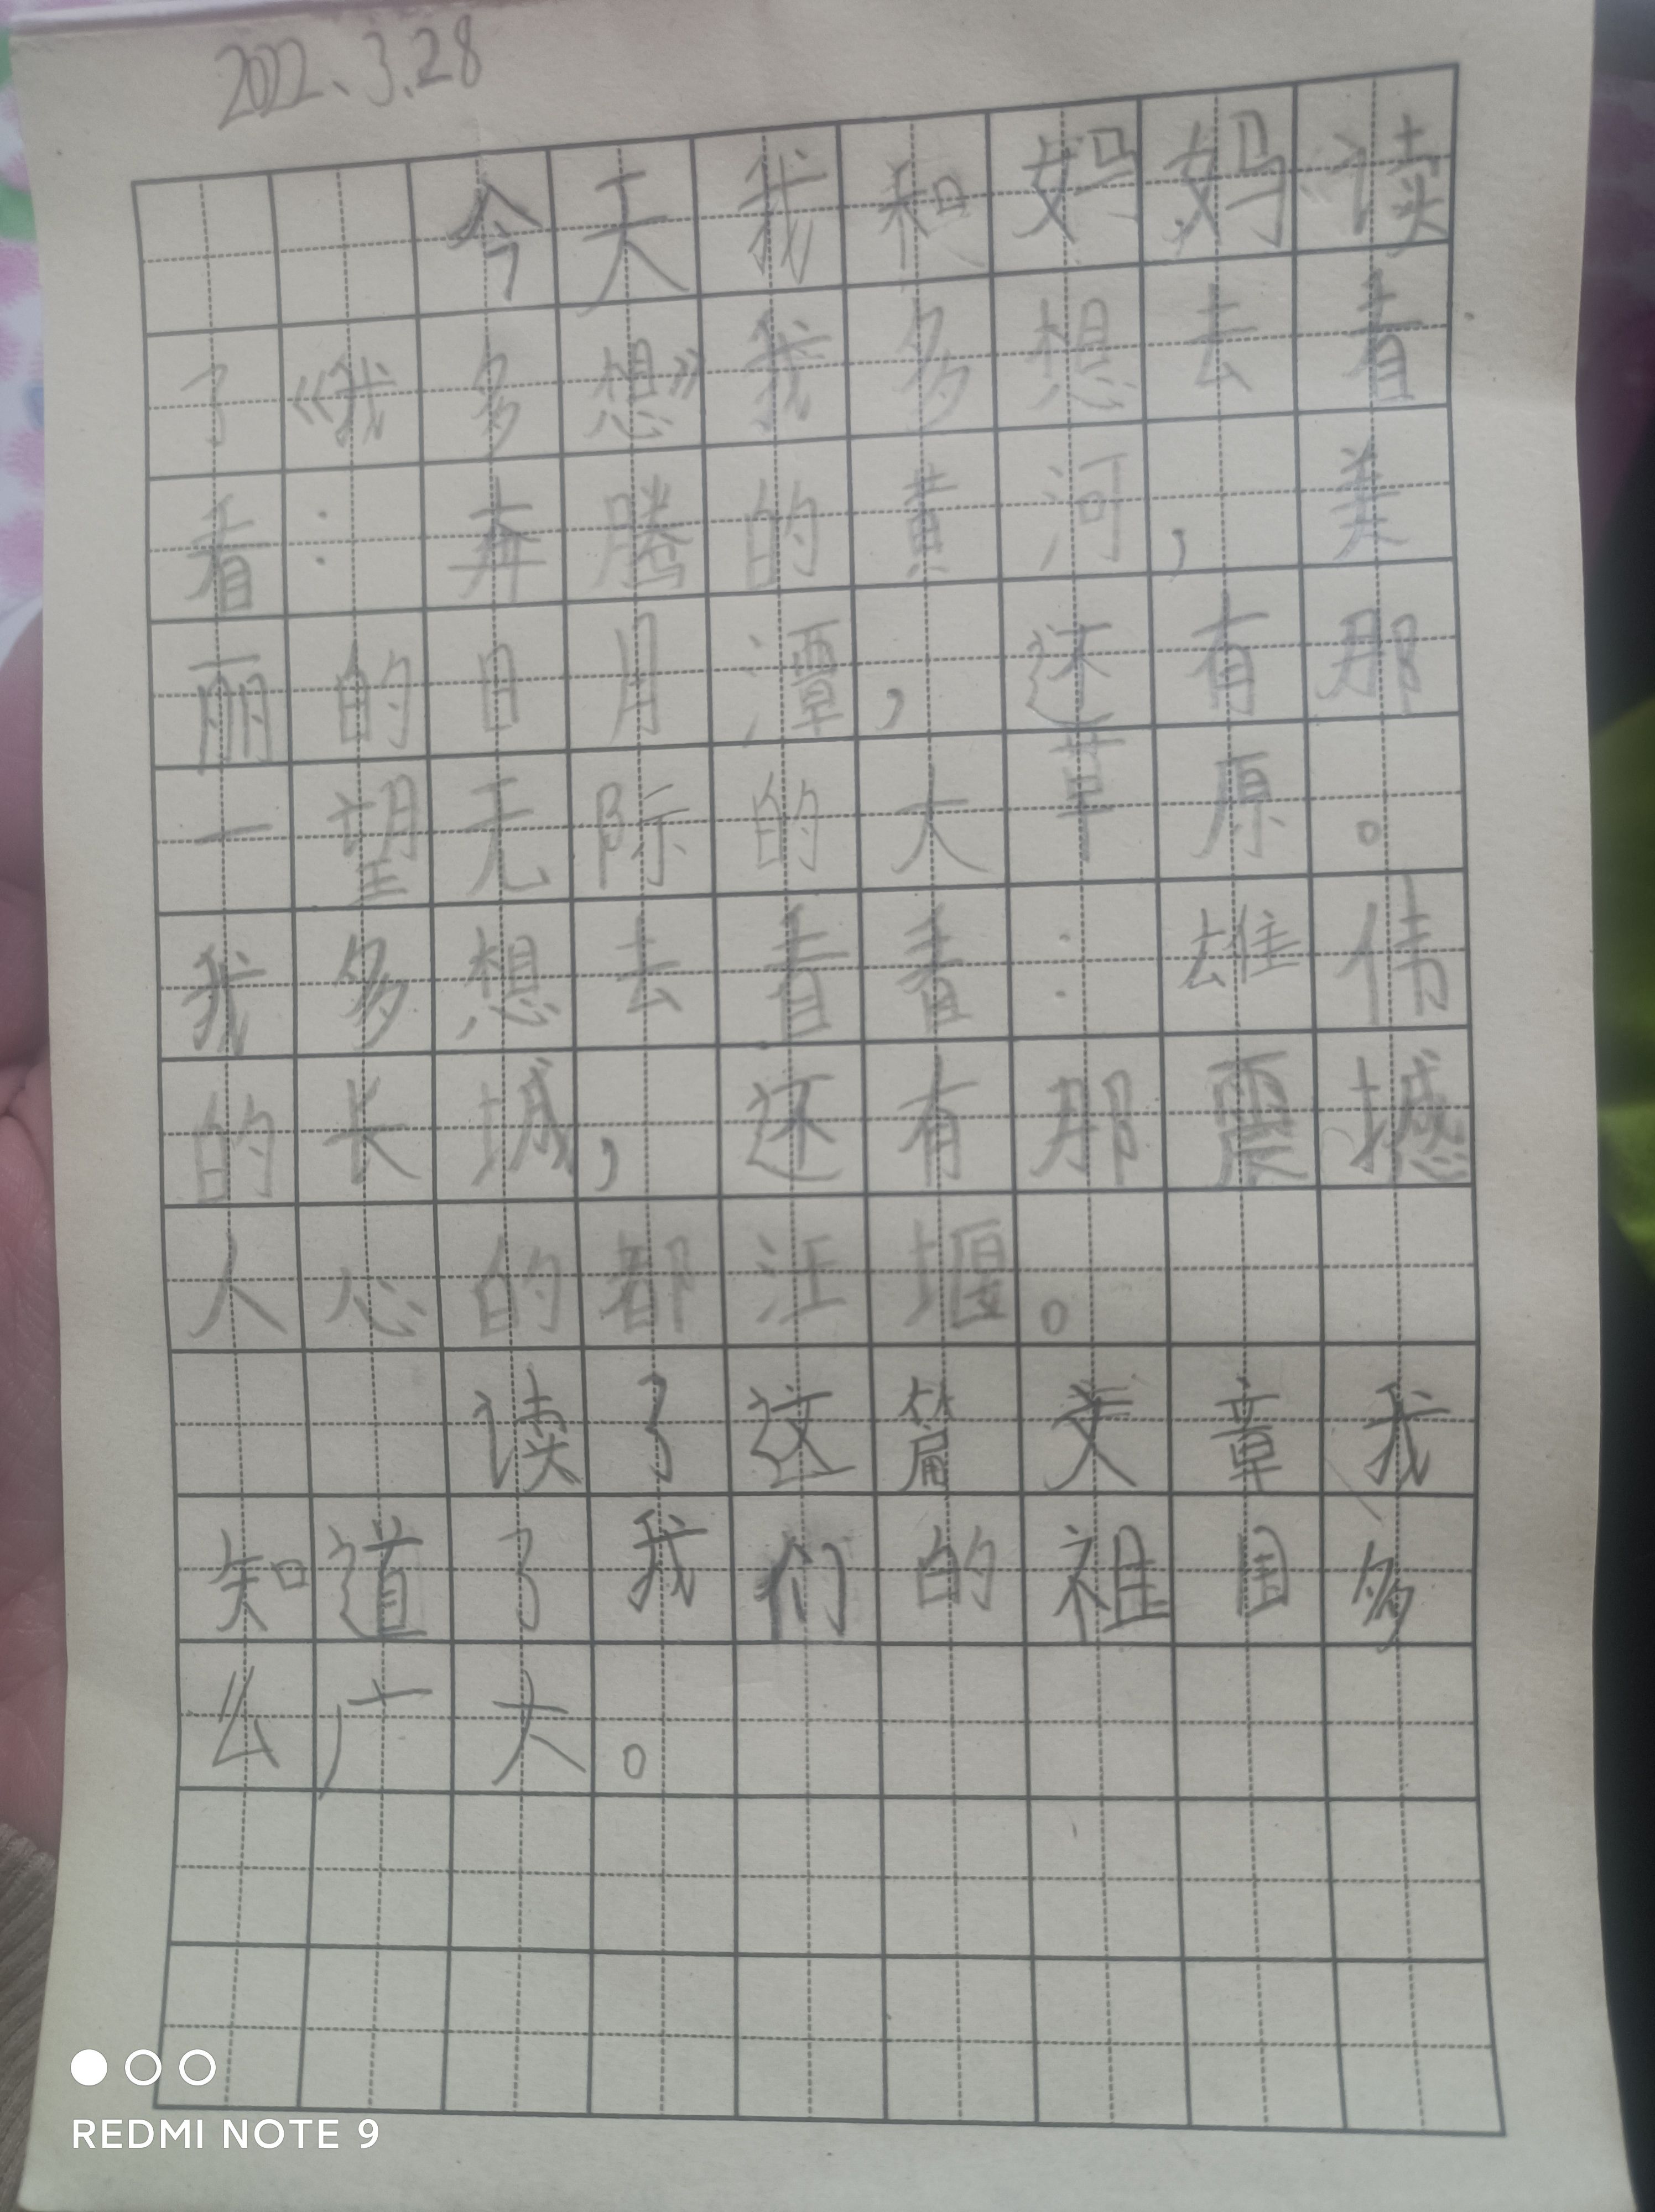 2022、3.28
今天我和妈妈读
了《我多想》我多想去看
看：奔腾的黄河，美
丽的日月潭，还有那
一望无际的大草原。
我多想去看看：雄伟
的长城，还有那震撼
人心的都江堰。
读了这篇文章我
知道了我们的祖国多
么广大。
REDMI NOTE 9